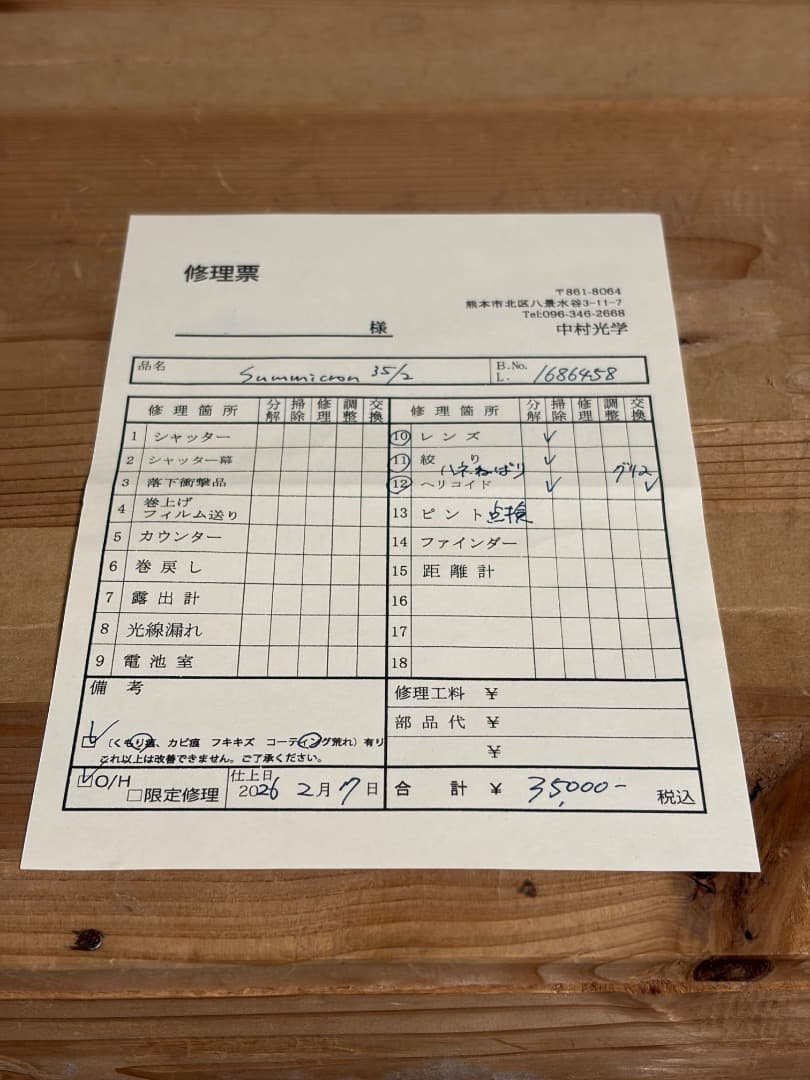 修理票
〒861-8064
熊本市北区八景水谷3-11-7
Tel:096-346-2668
様
中村光学
品名 Summicron 35/2 B.No. L. 1686458
修理箇所 分解 掃除 修理 調整 交換 修理箇所 分解 掃除 修理 調整 交換
1 シャッター
2 シャッター幕
3 落下衝撃品
4 巻上げ フィルム送り
5 カウンター
6 巻戻し
7 露出計
8 光線漏れ
9 電池室
10 レンズ ✓
11 絞り ✓
ハネねばり グリス
12 ヘリコイド ✓ ✓
13 ピント点検
14 ファインダー
15 距離計
16
17
18
備考
☑ (くもり痕、カビ痕 フキキズ コーティング荒れ) 有り
これ以上は改善できません。ご了承ください。
修理工料 ¥
部品代 ¥
¥
☑O/H
□限定修理
仕上日
2026 2月 7日
合計 ¥ 35,000- 税込